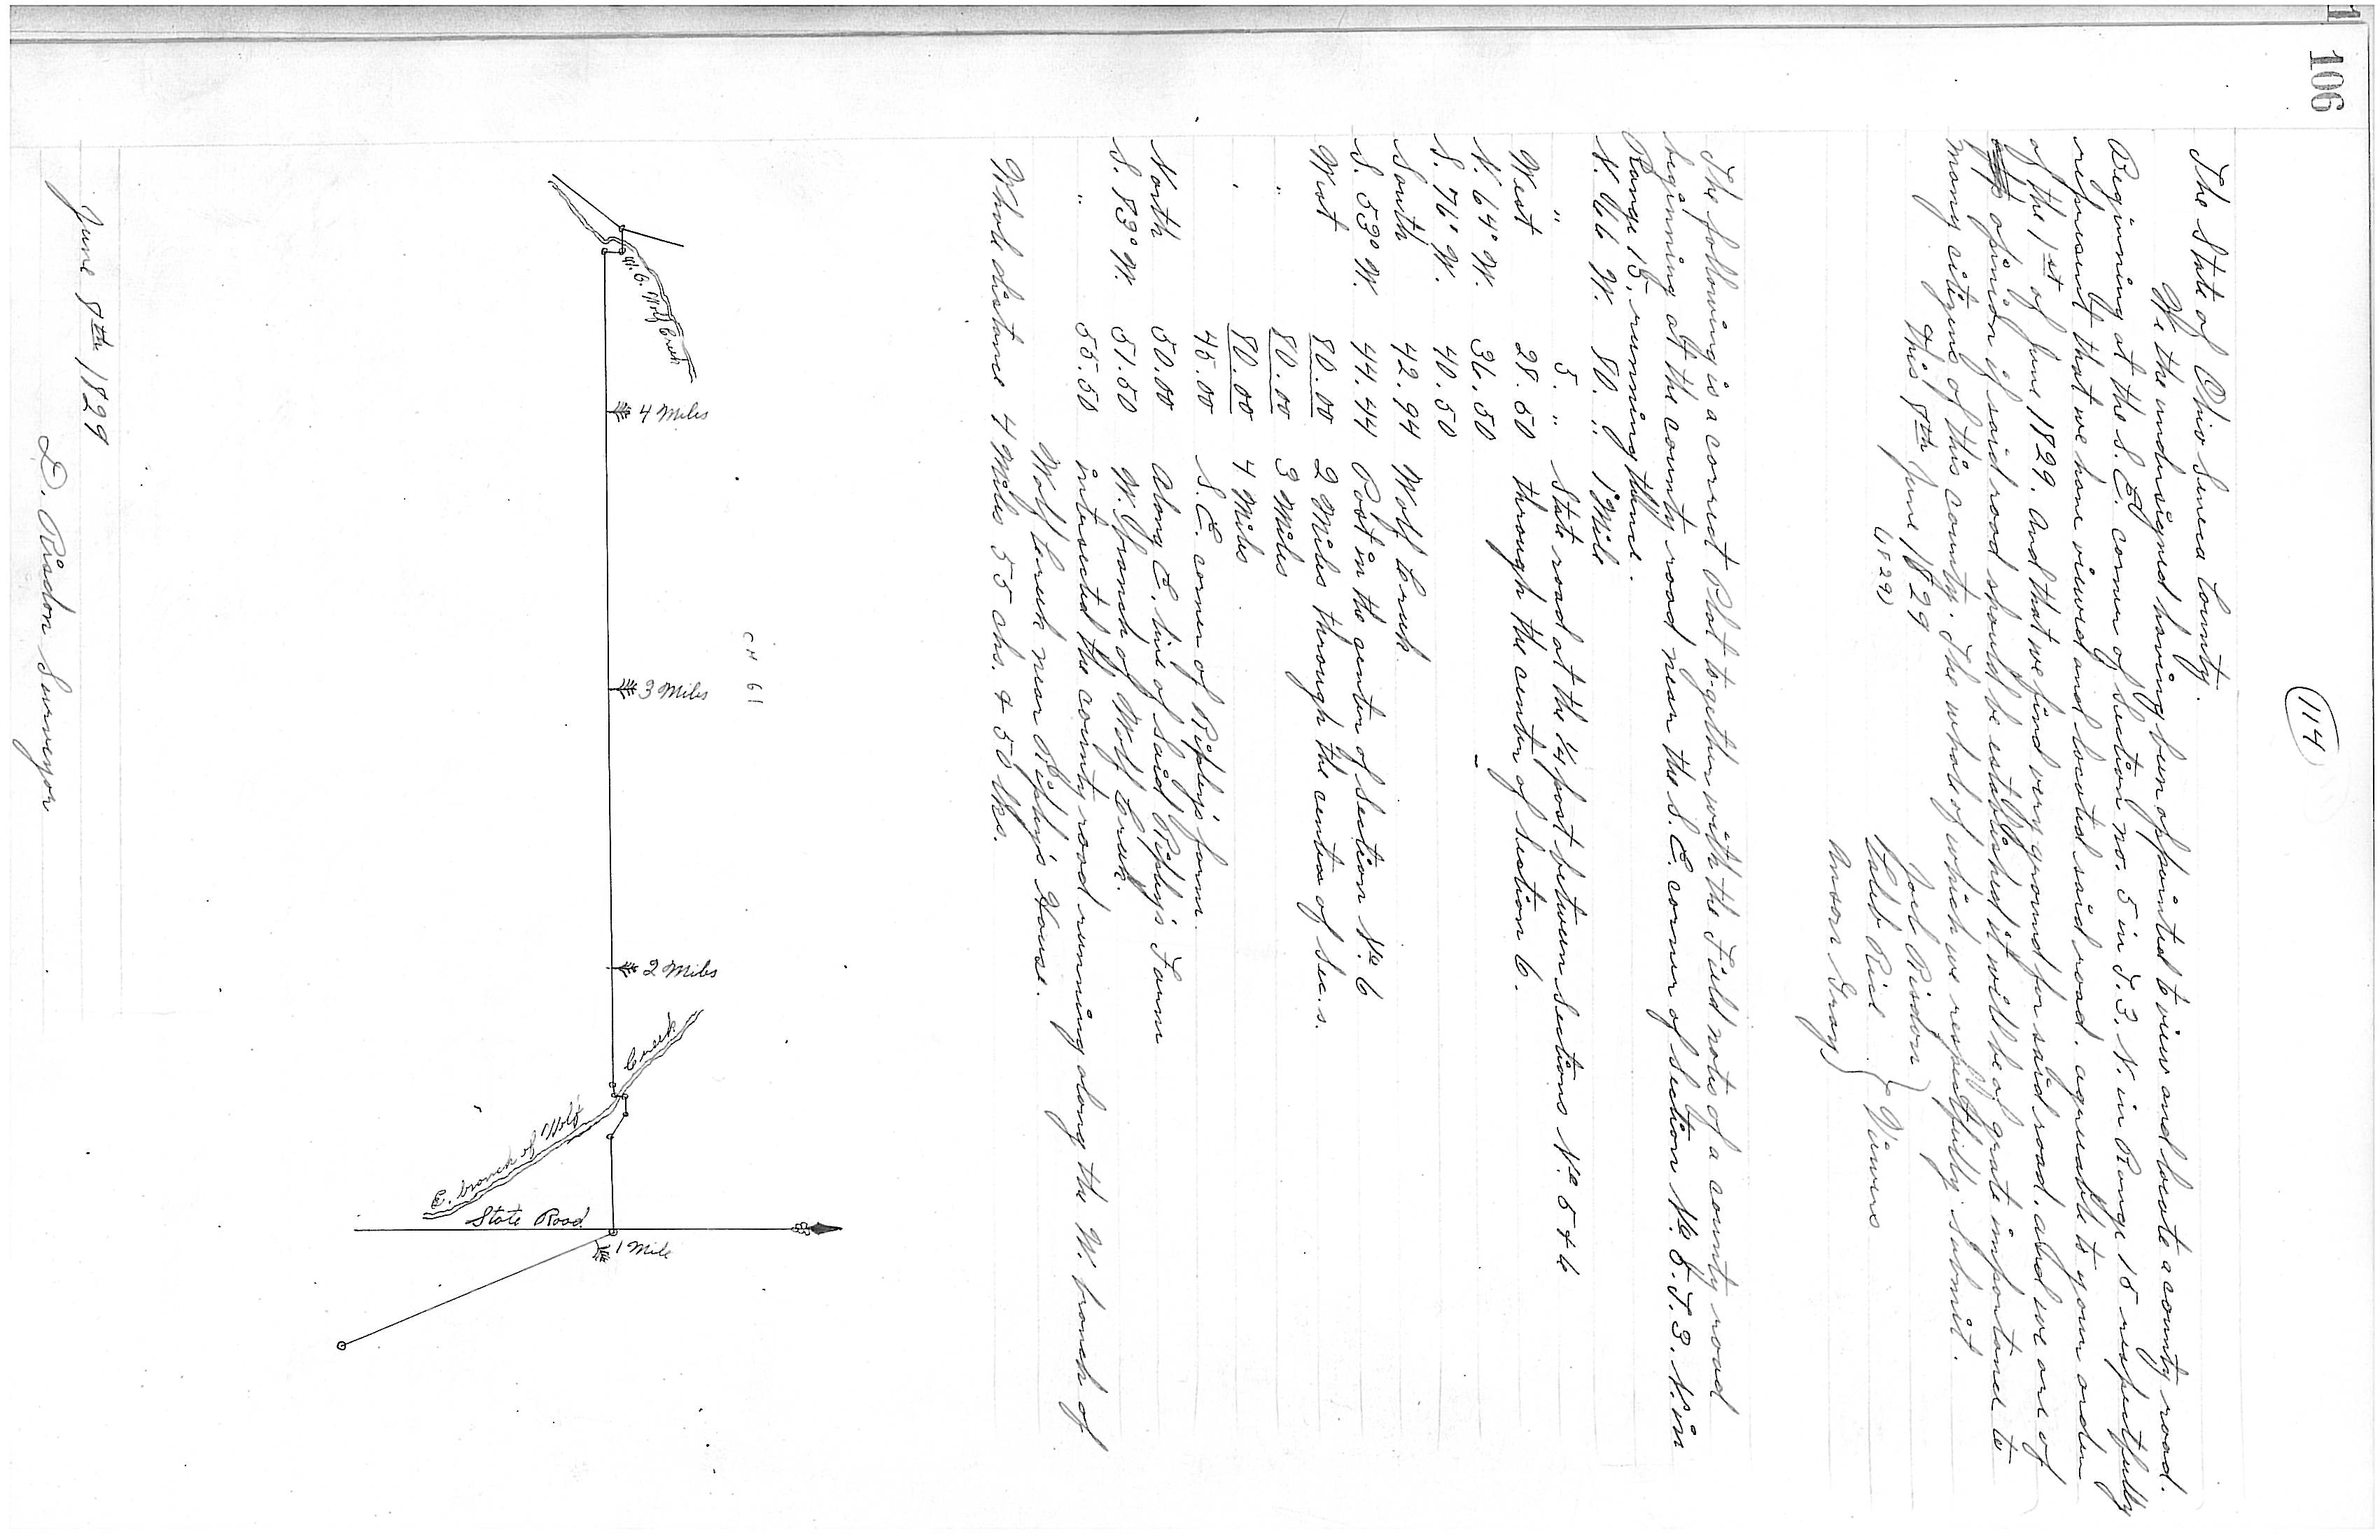 106
114
The State of Ohio Seneca County.
We the undersigned having been appointed to view and locate a county road.
Beginning at the S. E. corner of Section no. 5 in T. 3. N. in Range 15 respectfully
represent that we have viewed and located said road. agreeable to your order
of the 1st of June 1829. and that we find very good ground for said road. and we are of
opinion if said road should be established it will be of grate importance to
many citizens of this county. The whole of which we respectfully submit.
this 8th June 1829
(1829)
Joel Risdon
Caleb Rice } Viewers
Gray
The following is a correct Plat together with the Field notes of a county road
beginning at the county road near the S. E. corner of Section No 5. T. 3. N. in
Range 15, running thence.
N. 66 W. 80. " 1 Mile
" 5. " State road at the 1/4 post between Sections No 5 & 6
West 28.50 through the center of Section 6.
N. 64° W. 36.50
S. 76° W. 40.50
South 42.94 Wolf Creek
S. 53° W. 44.44 Post in the center of Section No. 6
West 80.00 2 Miles through the center of Sec. s.
" 80.00 3 Miles
" 80.00 4 Miles
45.00 S. E. corner of Ripley's farm.
North 50.00 Along E. line of said Ripley's Farm
S. 73° W. 51.50 W. branch of Wolf Creek.
" 55.50 intersected the county road running along the W. branch of
Wolf Creek near Ripley's House.
Whole distance 4 Miles 55 chs. & 50 lks.
CH 61
W. B. Wolf Creek
4 Miles
3 Miles
2 Miles
Creek
E. branch of Wolf
State Road
1 Mile
June 8th 1829
D. Risdon Surveyor